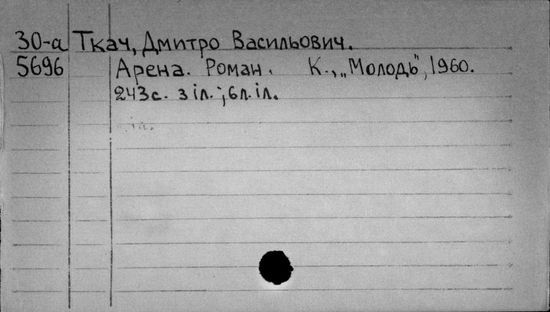 30-а Ткач, Дмитро Васильович.
5696 Арена. Роман. К., „Молодь", 1960.
243с. з іл.; 6л. іл.